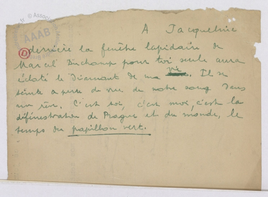 A Jacqueline
derrière la fenêtre lapidaire de
Marcel Duchamp pour toi seule aura
éclaté le Diamant de ma vie. Il se
teinte à perte de vue de notre sang dans
un sur. C'est toi, c'est moi, c'est la
défenestration de Prague et du monde, le
temps du papillon vert.